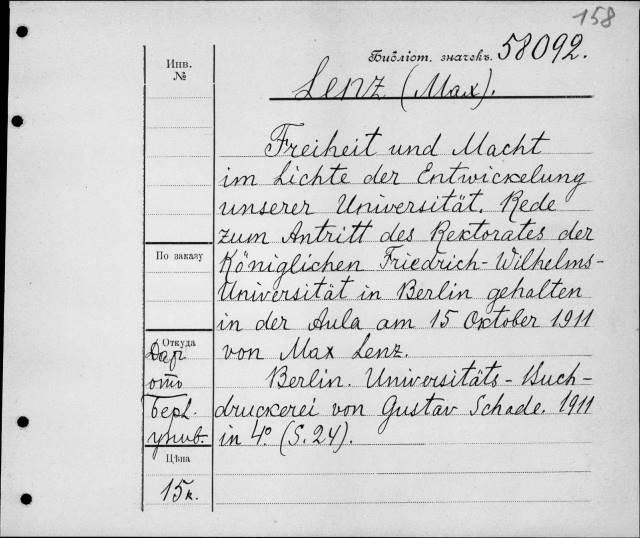 158
Библіот. значекъ. 58092.
Инв.
№
Lenz (Max).
Freiheit und Macht
im Lichte der Entwickelung
unserer Universität. Rede
zum Antritt des Rektorates der
Königlichen Friedrich-Wilhelms-
Universität in Berlin gehalten
in der Aula am 15 Oktober 1911
von Max Lenz.
Berlin. Universitäts-Buch-
druckerei von Gustav Schade. 1911
in 4° (S. 24).
По заказу
Откуда
Дар
отъ
Берл.
унив.
Цѣна
15 к.